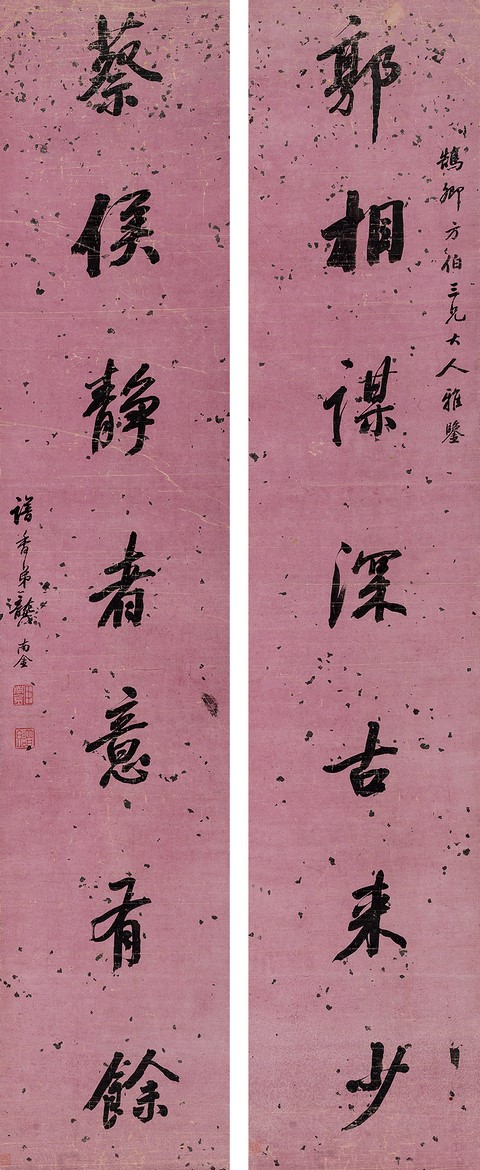 鵠卿方伯三兄大人雅鑒
郭相謀深古来少
蔡侯靜者意有餘
譜香弟龔